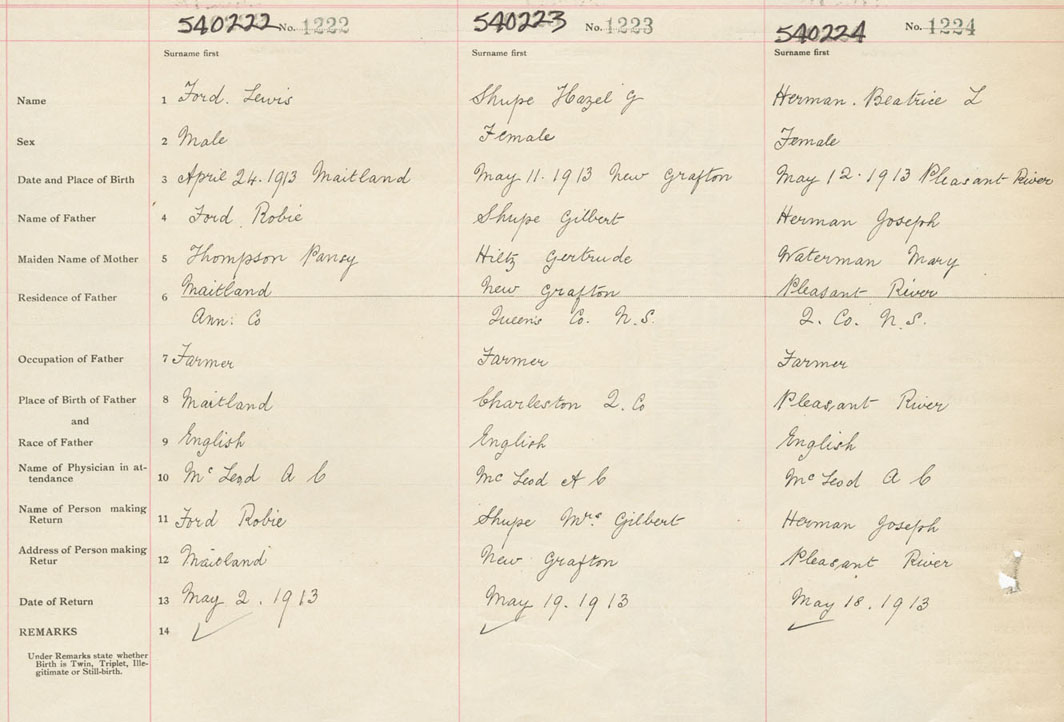 540222 No. 1222 540223 No. 1223 540224 No. 1224
Surname first Surname first Surname first
Name 1 Ford. Lewis Shupe Hazel G Herman. Beatrice L
Sex 2 Male Female Female
Date and Place of Birth 3 April 24. 1913 Maitland May 11. 1913 New Grafton May 12. 1913 Pleasant River
Name of Father 4 Ford Robie Shupe Gilbert Herman Joseph
Maiden Name of Mother 5 Thompson Pansy Hiltz Gertrude Waterman Mary
Residence of Father 6 Maitland New Grafton Pleasant River
Ann: Co Queens Co. N.S. Q. Co. N.S.
Occupation of Father 7 Farmer Farmer Farmer
Place of Birth of Father 8 Maitland Charleston Q. Co Pleasant River
and
Race of Father 9 English English English
Name of Physician in at-
tendance 10 Mc Leod A C Mc Leod A C Mc Leod A C
Name of Person making
Return 11 Ford Robie Shupe Mrs Gilbert Herman Joseph
Address of Person making
Retur 12 Maitland New Grafton Pleasant River
Date of Return 13 May 2. 1913 May 19. 1913 May 18. 1913
REMARKS 14
Under Remarks state whether
Birth is Twin, Triplet, Ille-
gitimate or Still-birth.